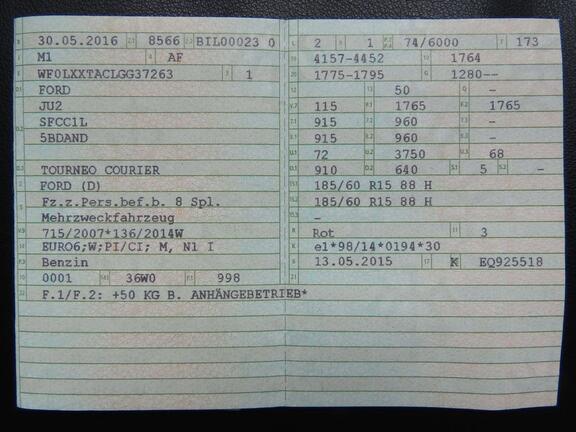 30.05.2016 8566 BIL00023 0
M1 AF
WF0LXXTACLGG37263 1
FORD
JU2
SFCC1L
5BDAND
TOURNEO COURIER
FORD (D)
Fz.z.Pers.bef.b. 8 Spl.
Mehrzweckfahrzeug
715/2007*136/2014W
EURO6;W;PI/CI; M, N1 I
Benzin
0001 36W0 998
F.1/F.2: +50 KG B. ANHÄNGEBETRIEB*
2 1 74/6000 173
4157-4452 1764
1775-1795 1280--
50 -
115 1765 1765
915 960 -
915 960 -
72 3750 68
910 640 5 -
185/60 R15 88 H
185/60 R15 88 H
-
Rot 3
e1*98/14*0194*30
13.05.2015 K EQ925518